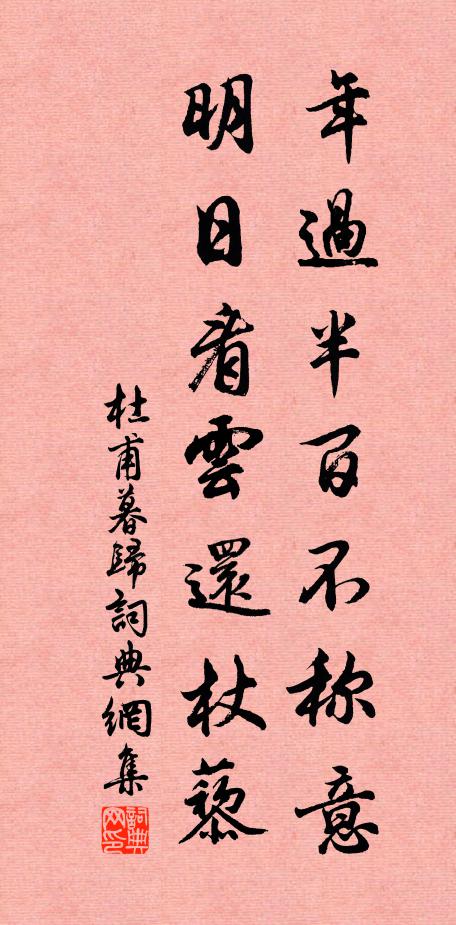 年過半百不称意
明日看雲還杖藜
杜甫暮歸詞典網集
詞典
网印